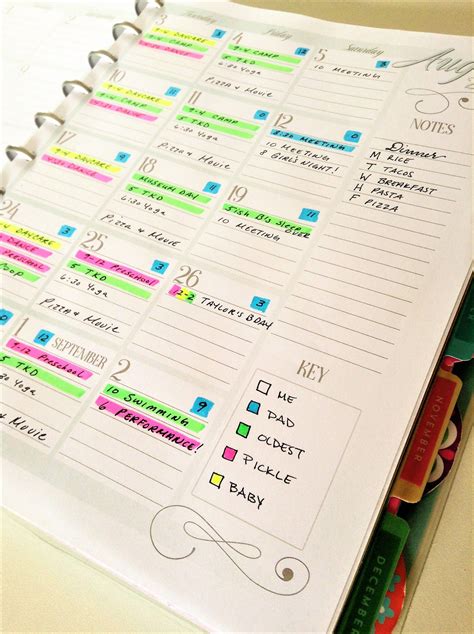 Thursday
Friday
Saturday
Aug
3
9-4 DAYCARE
9-4 CAMP
4
9-4 CAMP
5 TKD
6:30 Yoga
PIZZA & MOVIE
5
10 MEETING
10
9-4 DAYCARE
9-4 CAMP
5 TKD
11
9-4 CAMP
5 TKD
6:30 Yoga
PIZZA & MOVIE
12
8:30 MEETING
12 MEETING
8 GIRL'S NIGHT!
17
9-4 DAYCARE
5 TKD
18
MUSEUM DAY
5 TKD
6:30 Yoga
PIZZA & MOVIE
19
5ish B's SLEEP OVER
10 MEETING
11
24
DAYCARE
PRESCHOOL
25
9-12 PRESCHOOL
5 TKD
6:30 Yoga
PIZZA & MOVIE
3
26
12-2 TAYLOR'S BDAY
3
1 SEPTEMBER
9-12 PRESCHOOL
5 TKD
6:30 Yoga
MOVIE
2
10 SWIMMING
6 PERFORMANCE!
9
NOTES
Dinner
M RICE
T TACOS
W BREAKFAST
H PASTA
F PIZZA
KEY
ME
DAD
OLDEST
PICKLE
BABY
NOVEMBER
DECEMBER